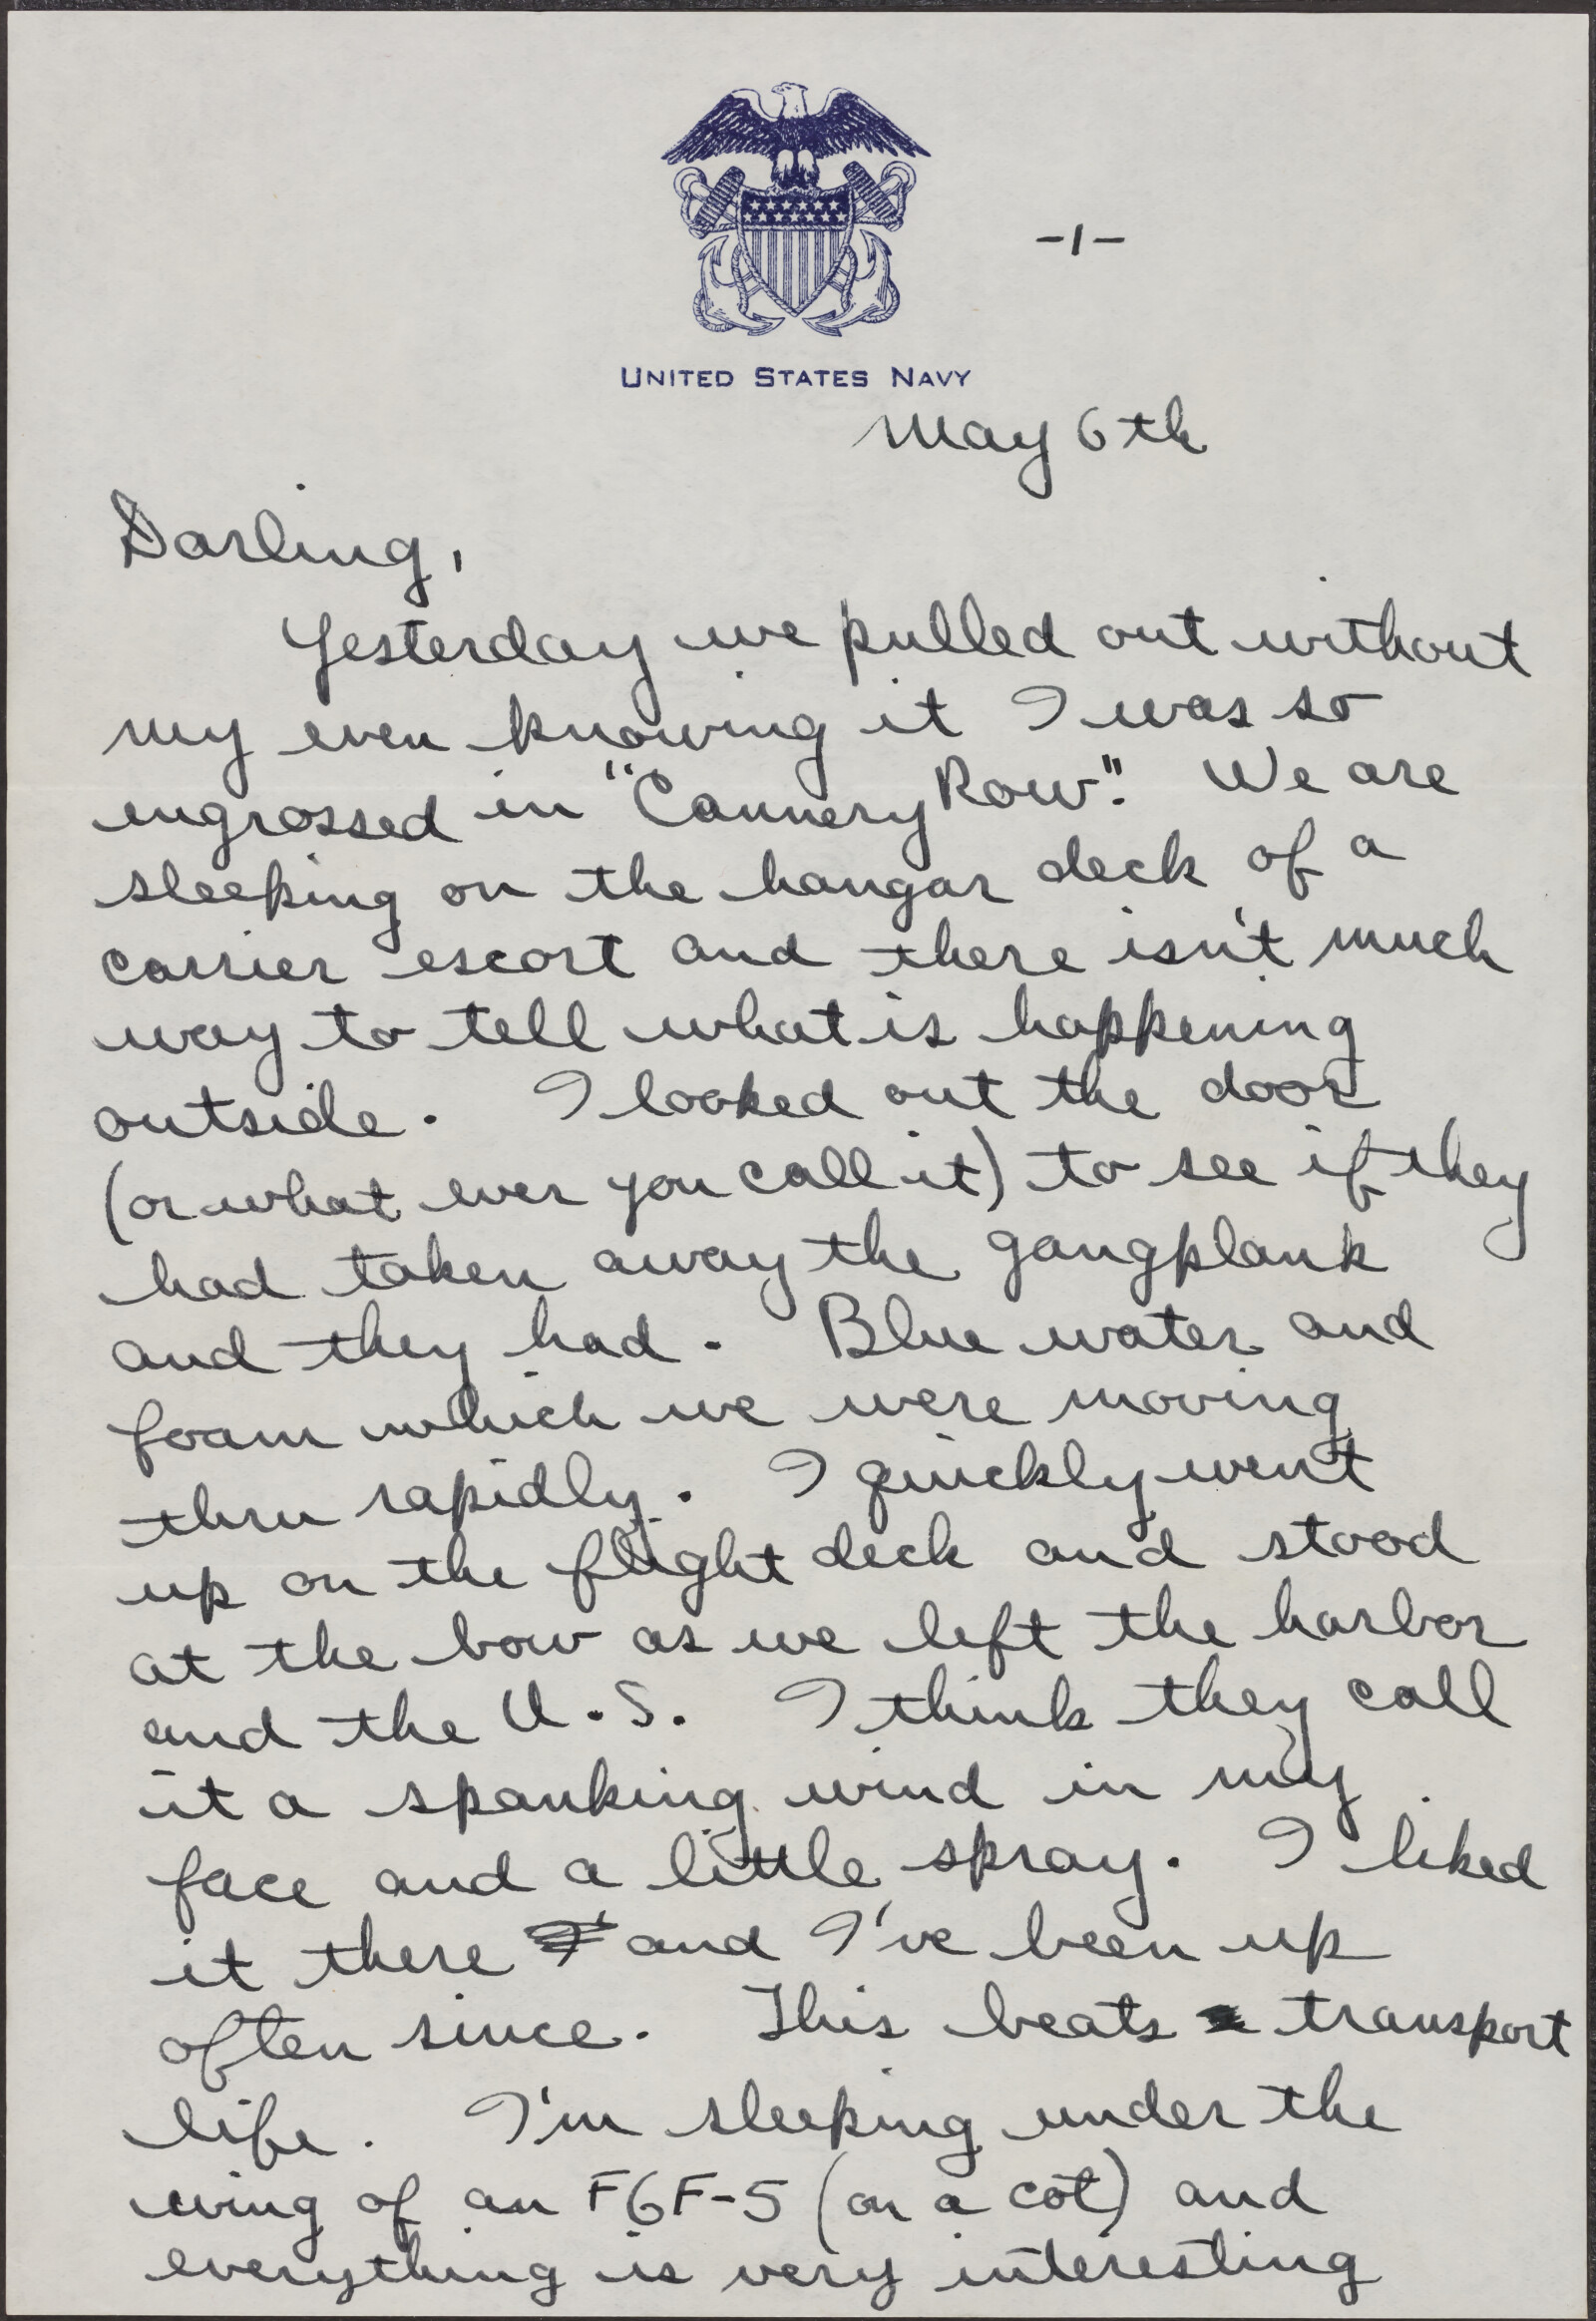 -1-
UNITED STATES NAVY
May 6th
Darling,
Yesterday we pulled out without
my even knowing it I was so
engrossed in "Cannery Row". We are
sleeping on the hangar deck of a
carrier escort and there isn't much
way to tell what is happening
outside. I looked out the door
(or what ever you call it) to see if they
had taken away the gangplank
and they had. Blue water and
foam which we were moving
thru rapidly. I quickly went
up on the flight deck and stood
at the bow as we left the harbor
and the U.S. I think they call
it a spanking wind in my
face and a little spray. I liked
it there and I've been up
often since. This beats transport
life. I'm sleeping under the
wing of an F6F-5 (on a cot) and
everything is very interesting